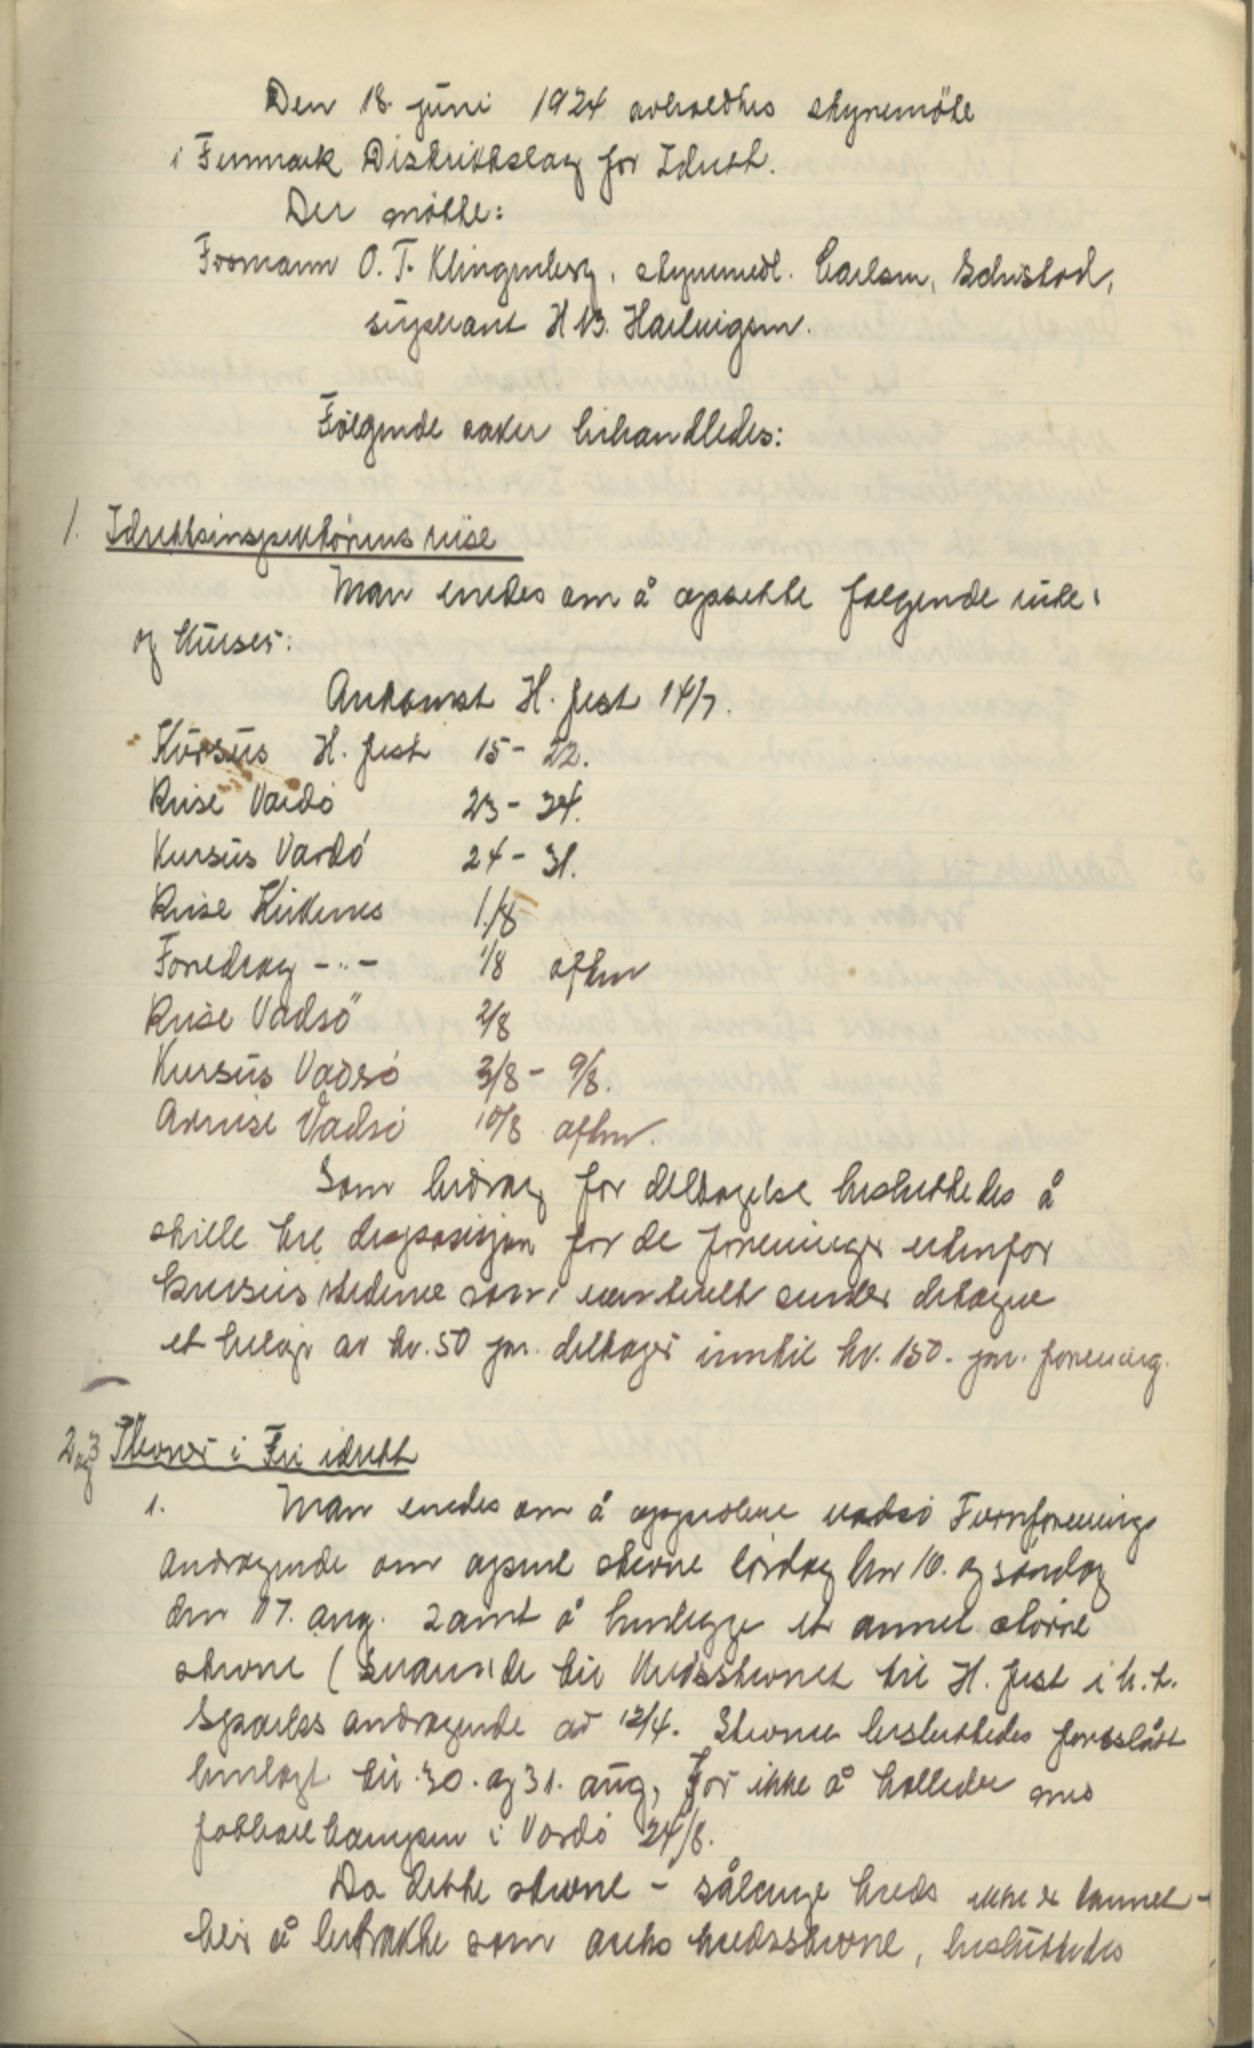 Den 18. juni 1924 avholdtes styremöte
i Finnmark Distriktslag for Idrett.
Der mötte:
Formann O. T. Klingenberg, styremedl. Carlsen,
supleant H B. Hartvigsen.
Følgende saker behandledes:
1. Idrettsinspektörens reise
Man enedes om å opsette følgende
og kurser:
Ankomst H. fest 14/7.
Kursus H. fest 15 - 22.
Reise Vardö 23 - 24.
Kursus Vardö 24 - 31.
Reise Kirkenes 1./8
Foredrag -"- 1/8 aften
Reise Vadsö 2/8
Kursus Vadsö 3/8 - 9/8.
Avreise Vadsö 10/8 aften.
Som bidrag for deltagelse besluttedes å
stille til disposisjon for de foreninger utenfor
kursusstedene som eventuelt sender deltagere
et beløp av kr. 50 pr. deltager inntil kr. 150.- pr. forening.
2 og 3 Stevner i Fri idrett
1. Man enedes om å Vadsö Turnforenings
andragende om åpent stevne lördag den 16. og söndag
den 17. aug. samt å henlegge et annet större
stevne (svarende til kredsstevnet til H. fest i h. t.
Sparks andragende av 12/4. Stevnet besluttedes foreslått
henlagt til 30. og 31. aug, for ikke å kollidere med
fotballkampen i Vardö 24/8.
Da dette stevne - sålenge kreds ikke er dannet -
blir å betrakte som kredsstevne, besluttedes